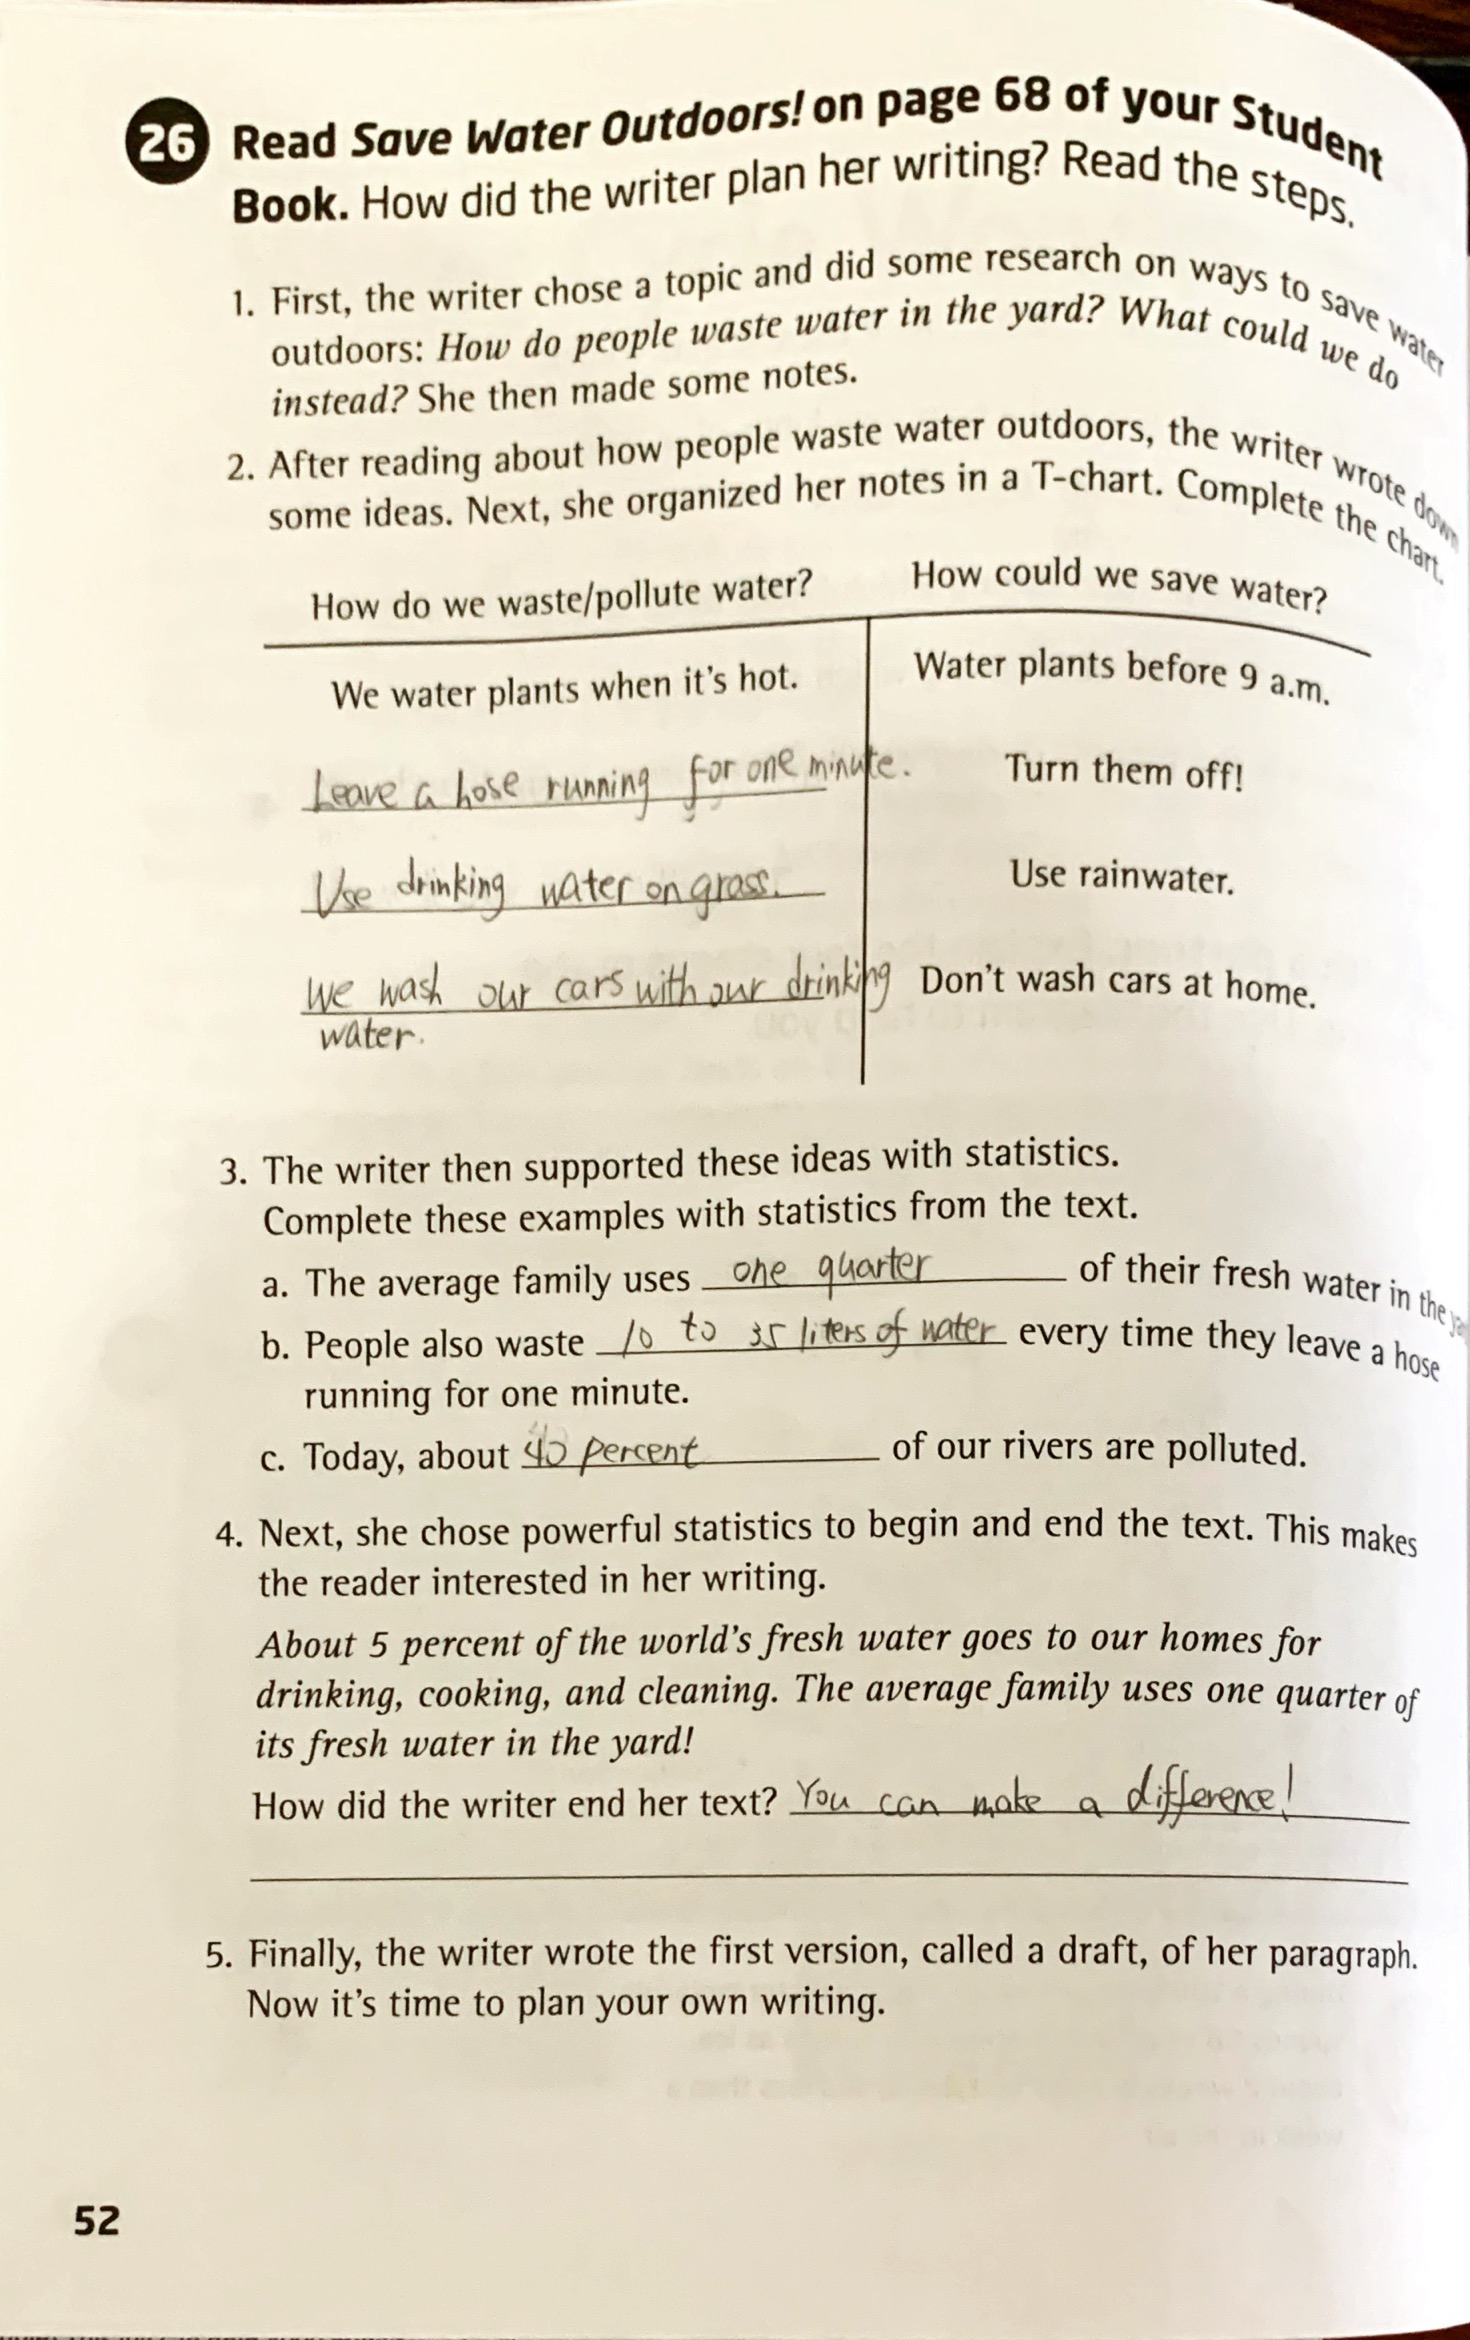 26 Read Save Water Outdoors! on page 68 of your Student
Book. How did the writer plan her writing? Read the steps.
1. First, the writer chose a topic and did some research on ways to save water
outdoors: How do people waste water in the yard? What could we do
instead? She then made some notes.
2. After reading about how people waste water outdoors, the writer wrote down
some ideas. Next, she organized her notes in a T-chart. Complete the chart.
How do we waste/pollute water? How could we save water?
We water plants when it's hot. Water plants before 9 a.m.
Leave a hose running for one minute. Turn them off!
Use drinking water on grass. Use rainwater.
We wash our cars with our drinking Don't wash cars at home.
water.
3. The writer then supported these ideas with statistics.
Complete these examples with statistics from the text.
a. The average family uses one quarter of their fresh water in the
b. People also waste 10 to 35 liters of water every time they leave a hose
running for one minute.
c. Today, about 40 percent of our rivers are polluted.
4. Next, she chose powerful statistics to begin and end the text. This makes
the reader interested in her writing.
About 5 percent of the world's fresh water goes to our homes for
drinking, cooking, and cleaning. The average family uses one quarter of
its fresh water in the yard!
How did the writer end her text? You can make a difference!
5. Finally, the writer wrote the first version, called a draft, of her paragraph.
Now it's time to plan your own writing.
52